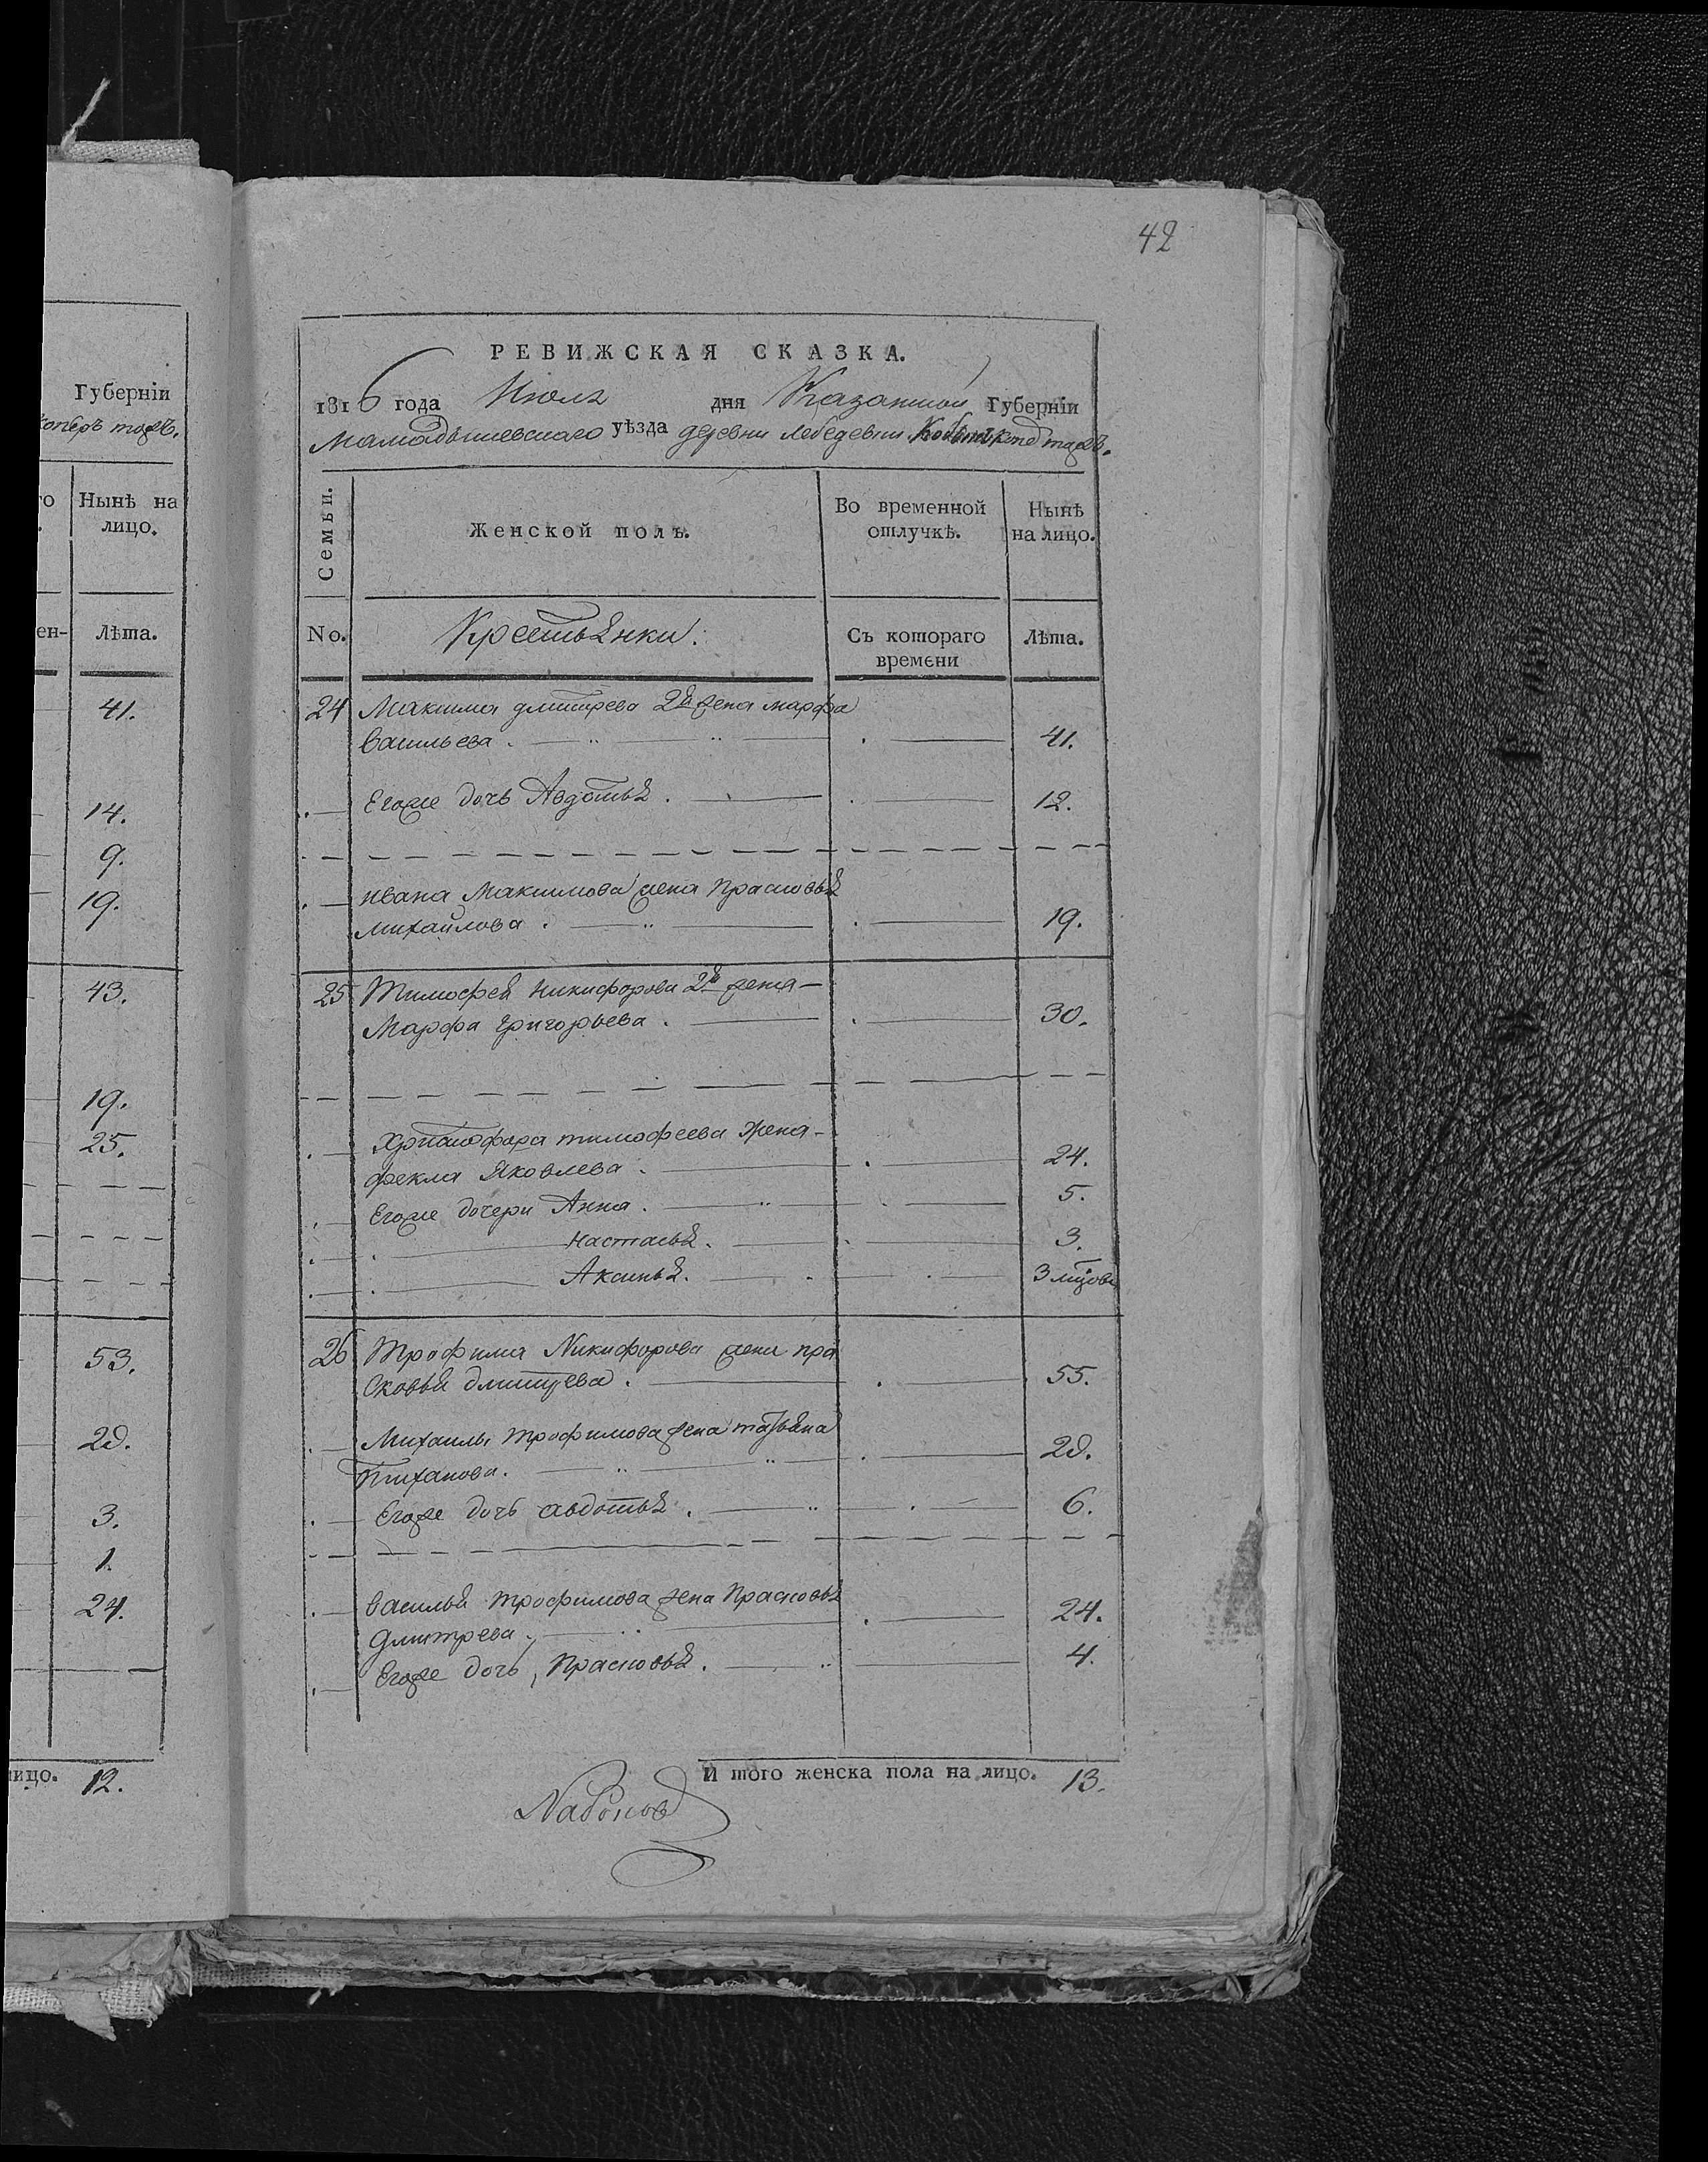 Губернiи
тожъ.
Нынѣ на
лицо.
Лѣта.
41.
14.
9.
19.
43.
19.
25.
53.
28.
3.
1.
24.
лицо. 12.
42
РЕВИЖСКАЯ СКАЗКА.
1816 года Июля дня Казанской Губернiи
Мамадышевскаго уѣзда деревни Лебедевки тожъ.
Семьи. Женской полъ. Во временной отлучкѣ. Нынѣ на лицо.
No. Крестьянки. Съ котораго времени Лѣта.
24 Максима Дмитрева 2я жена Марфа
Васильева. 41.
Егоже дочь Авдотья. 12.
Ивана Максимова жена Прасковья
Михайлова. 19.
25 Тимофея Никифорова 2я жена
Марфа Григорьева. 30.
Христофора Тимофеева жена
Фекла Яковлева. 24.
Егоже дочери Анна. 5.
Настасья. 3.
Аксинья. 3 мцовъ
26 Трофима Никифорова жена Пра
сковья Дмитрева. 55.
Михаилы Трофимова жена Татьяна
Тиханова. 28.
Егоже дочь Авдотья. 6.
Василья Трофимова жена Прасковья
Дмитрева. 24.
Егоже дочь Прасковья. 4.
И того женска пола на лицо. 13.